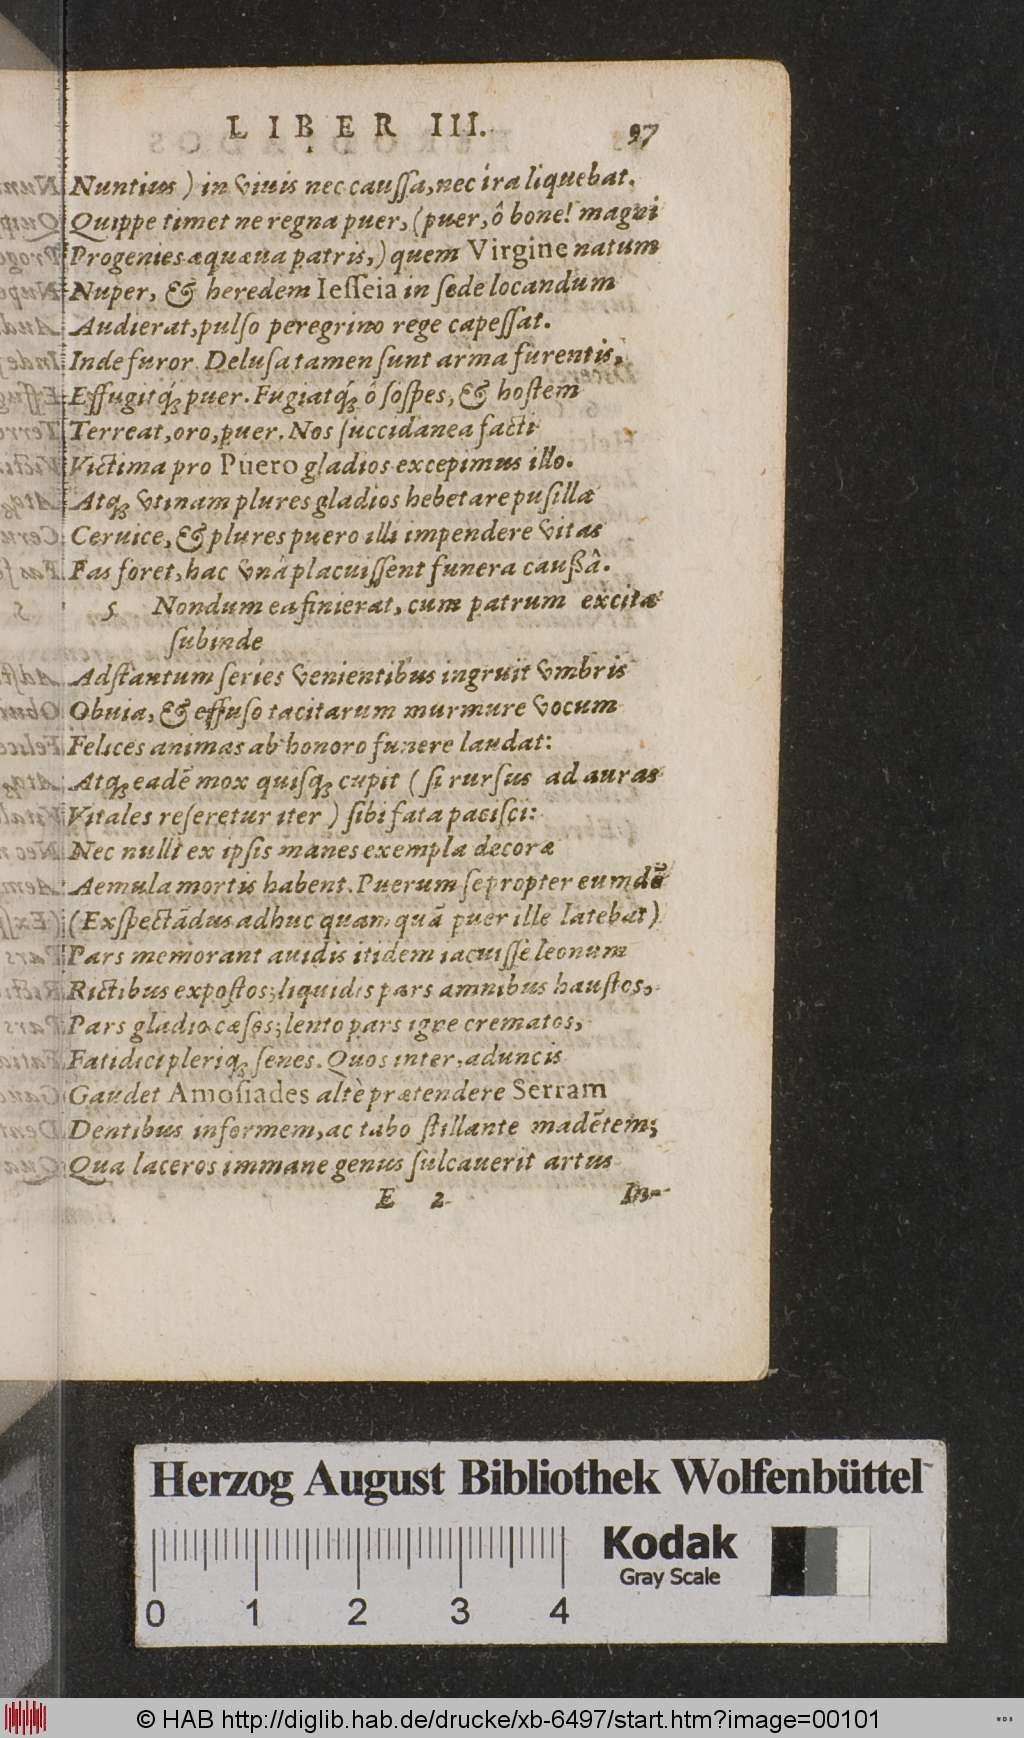 LIBER III. 97
Nuntius) in viuis nec caussa, nec ira liquebat.
Quippe timet ne regna puer, (puer, ô bone! magni
Progenies æquæua patris,) quem Virgine natum
Nuper, & heredem Iesseia in sede locandum
Audierat, pulso peregrino rege capessat.
Inde furor. Delusa tamen sunt arma furentis,
Effugitq́ꝫ puer. Fugiatq́ꝫ ô sospes, & hostem
Terreat, oro, puer. Nos succidanea facti
Victima pro Puero gladios excepimus illo.
Atqꝫ vtinam plures gladios hebetare pusillæ
Ceruice, & plures puero illi impendere vitas
Fas foret, hac vnâ placuissent funera caußâ.
5 Nondum ea finierat, cum patrum excitæ
subinde
Adstantum series venientibus ingruit vmbris
Obuia, & effuso tacitarum murmure vocum
Felices animas ab honoro funere laudat:
Atqꝫ eadē mox quisqꝫ cupit (si rursus ad auras
Vitales reseretur iter) sibi fata pacisci:
Nec nulli ex ipsis manes exempla decoræ
Aemula mortis habent. Puerum se propter eumdē
(Exspectādus adhuc quamquā puer ille latebat)
Pars memorant auidis itidem iacuisse leonum
Rictibus expostos; liquidis pars amnibus haustos,
Pars gladio cæsos; lento pars igne crematos,
Fatidici pleriqꝫ senes. Quos inter, aduncis
Gaudet Amosiades altè prætendere Serram
Dentibus informem, ac tabo stillante madētem;
Qua laceros immane genus sulcauerit artus
E 2 In-
Herzog August Bibliothek Wolfenbüttel
Kodak
Gray Scale
0 1 2 3 4
© HAB http://diglib.hab.de/drucke/xb-6497/start.htm?image=00101